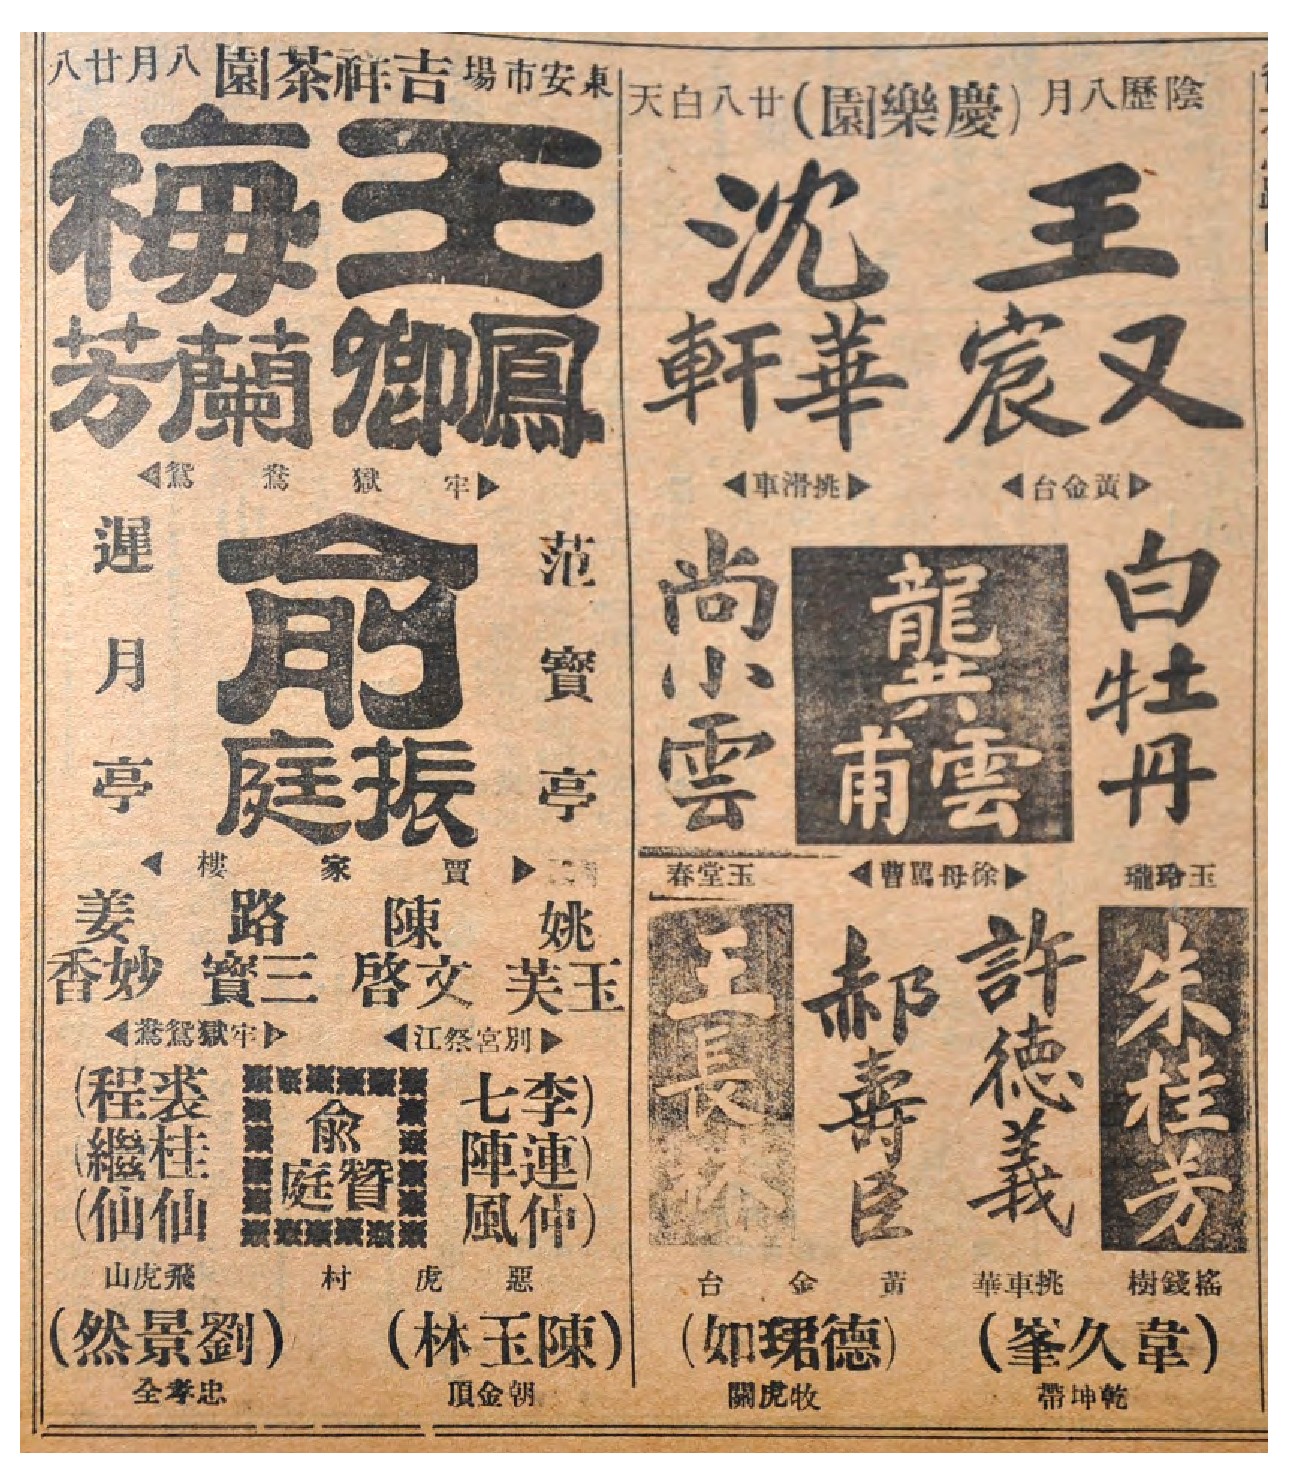 陰歷八月(慶樂園)廿八白天
王又宸
◀黃金台▶
沈華軒
◀挑滑車▶
白牡丹
玉玲瓏
龔雲甫
◀徐母罵曹▶
尚小雲
玉堂春
朱桂芳
搖錢樹
許德義
挑車華
郝壽臣
王長林
黃金台
(韋久峯)
乾坤帶
(德珺如)
牧虎關
東安市場吉祥茶園八月廿八
王鳳卿
梅蘭芳
◀牢獄鴛鴦▶
范寶亭
俞振庭
遲月亭
◀賈家樓▶
姚玉芙
陳文啓
◀別宮祭江▶
路三寶
姜妙香
◀牢獄鴛鴦▶
(李連仲)
七陣風
俞贊庭
惡虎村
裘桂仙
(程繼仙)
飛虎山
(陳玉林)
朝金頂
(劉景然)
忠孝全